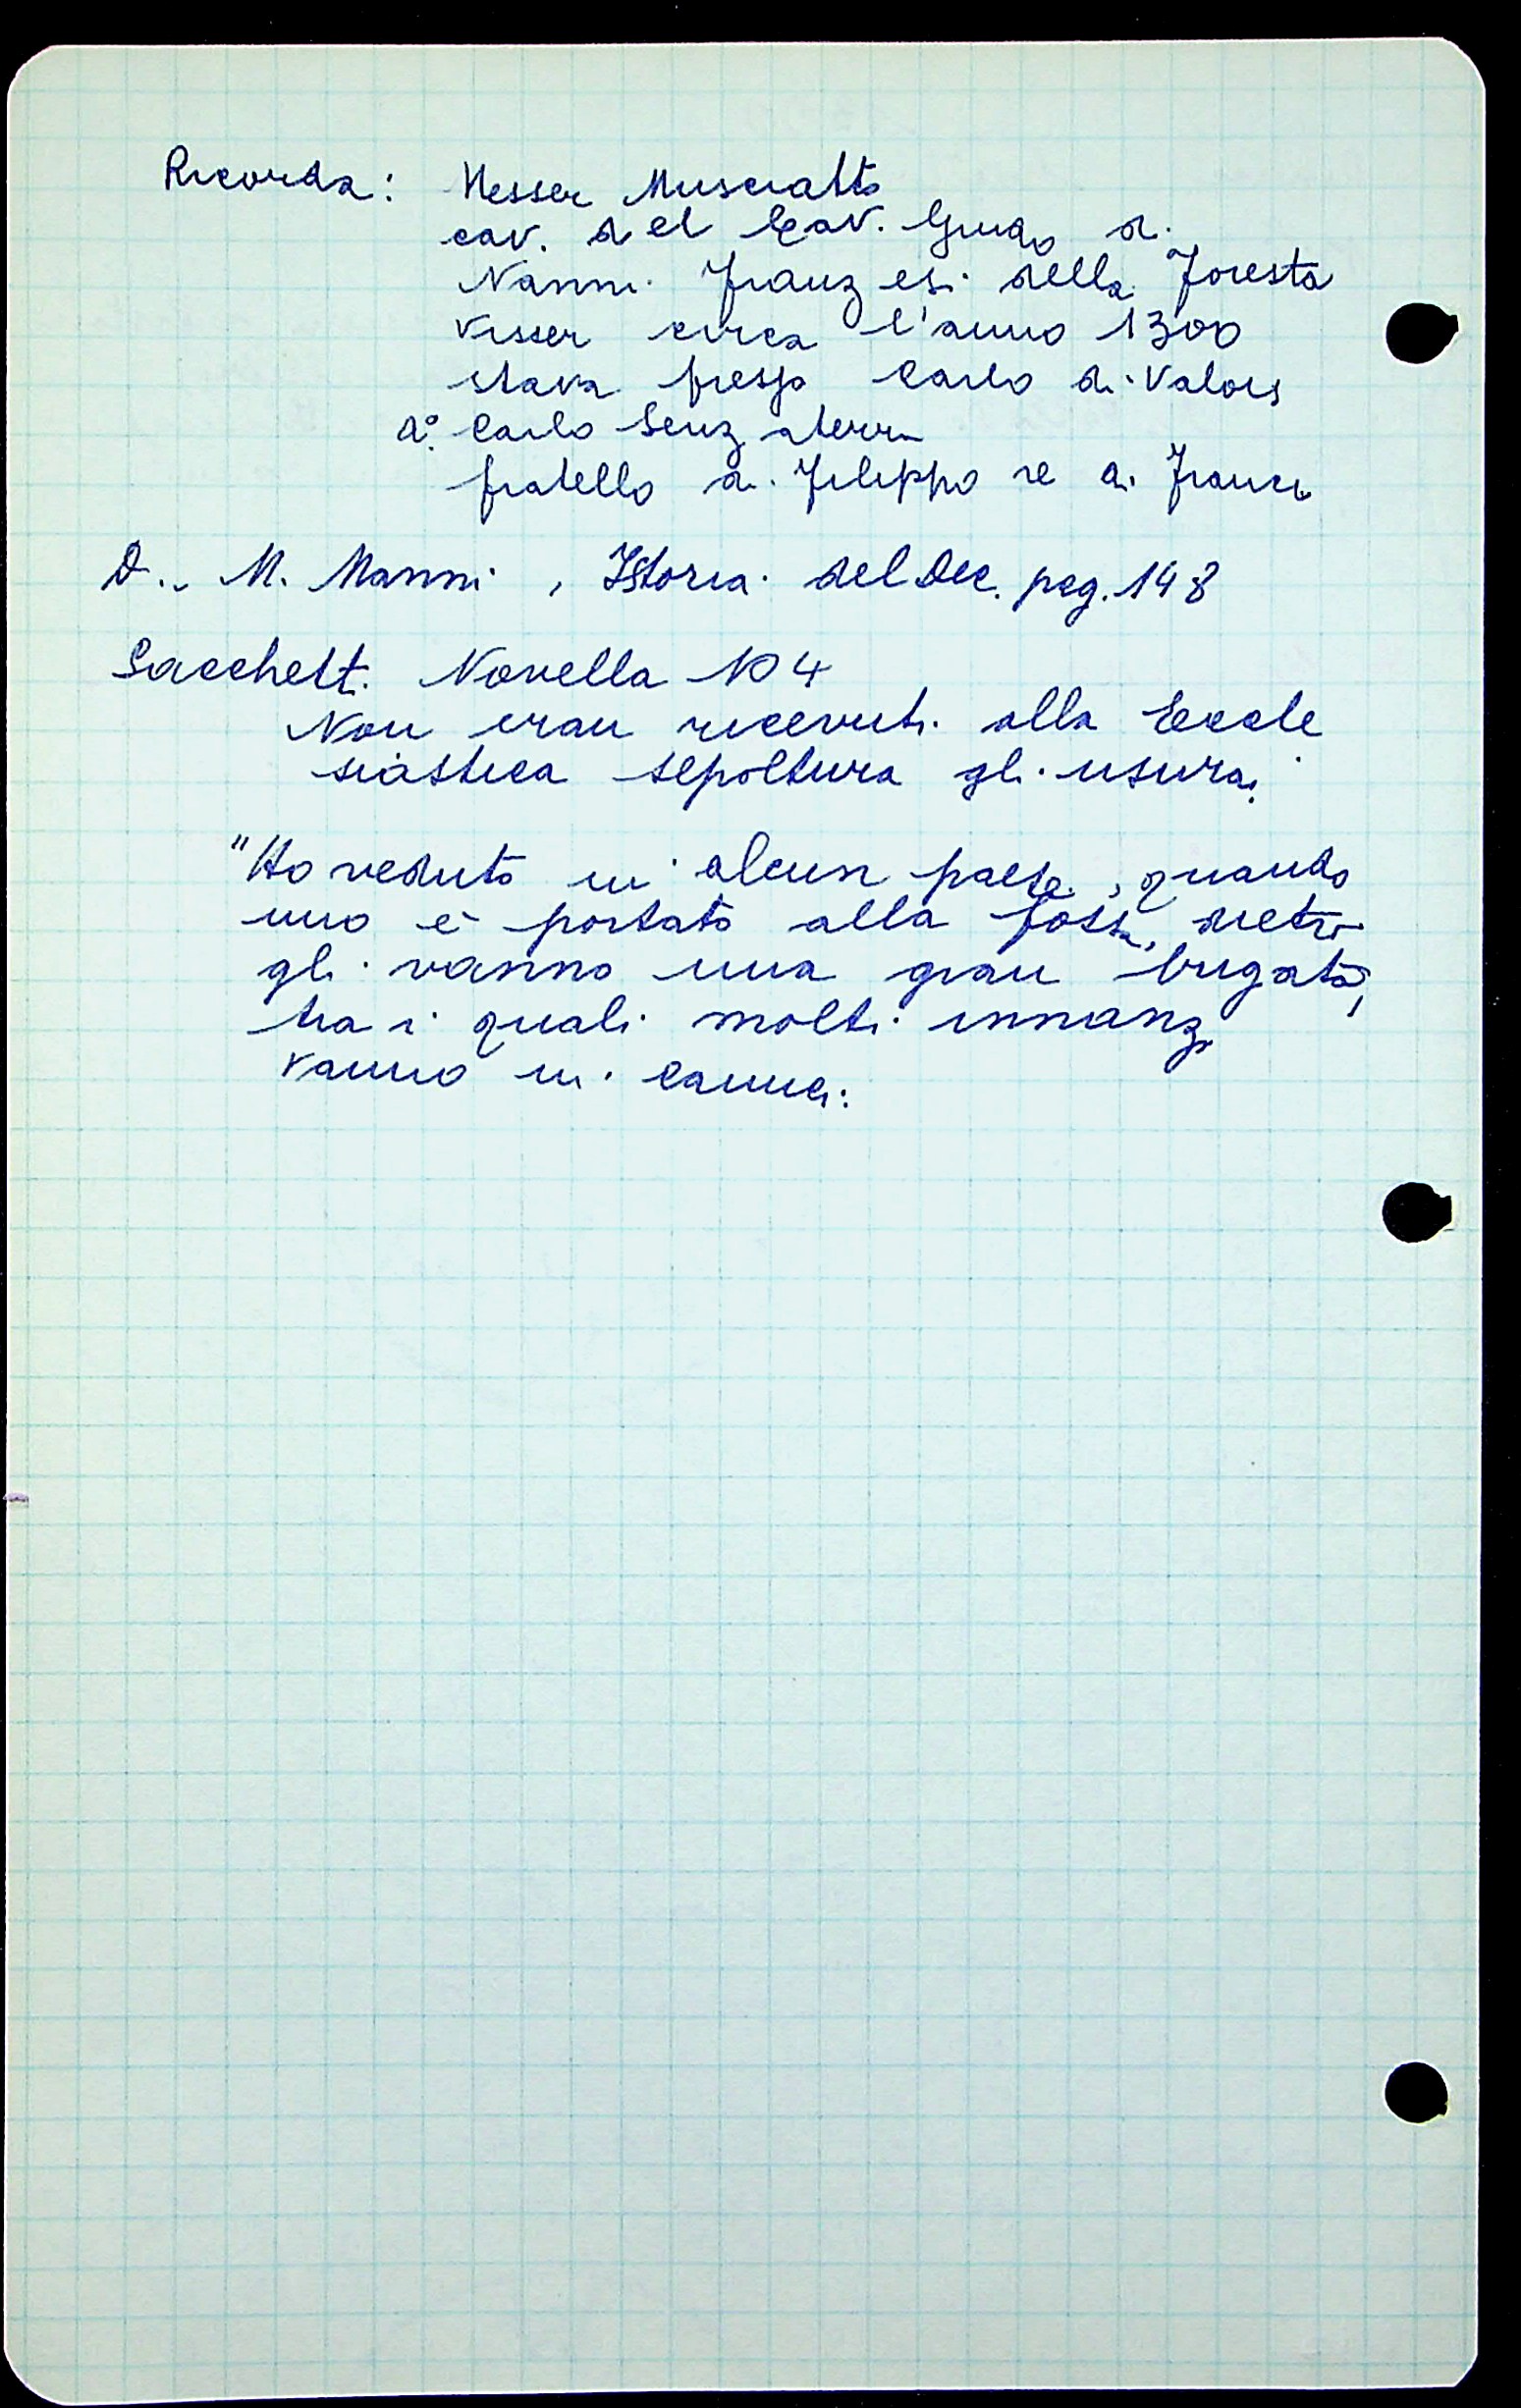 Ricorda: Messer Musciatto
cav. del Cav. Guido di
Nanni Franzesi della Foresta
visser circa l'anno 1300
stava presso Carlo di Valois
Carlo Senzaterra
fratello di Filippo re di Francia
D. M. Manni, Istoria del Dec. pag. 148
Sacchetti Novella 104
Non eran ricevuti alla Eccle
siastica sepoltura gli usurai
"Ho veduto in alcun paese, quando
uno è portato alla fossa, dietro
gli vanno una gran brigata,
tra i quali molti innanzi
vanno in